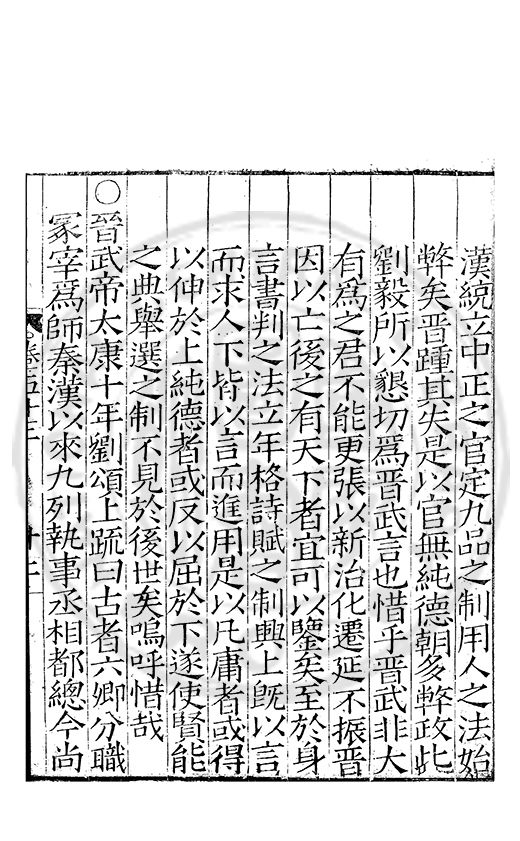 漢統立中正之官定九品之制用人之法始
弊矣晋踵其失是以官無純德朝多弊政此
劉毅所以懇切爲晋武言也惜乎晋武非大
有爲之君不能更張以新治化遷延不振晋
因以亡後之有天下者宜可以鑒矣至於身
言書判之法立年格詩賦之制興上旣以言
而求人下皆以言而進用是以凡庸者或得
以伸於上純德者或反以屈於下遂使賢能
之典舉選之制不見於後世矣嗚呼惜哉
○晉武帝太康十年劉頌上疏曰古者六卿分職
冢宰爲師秦漢以來九列執事丞相都總今尚